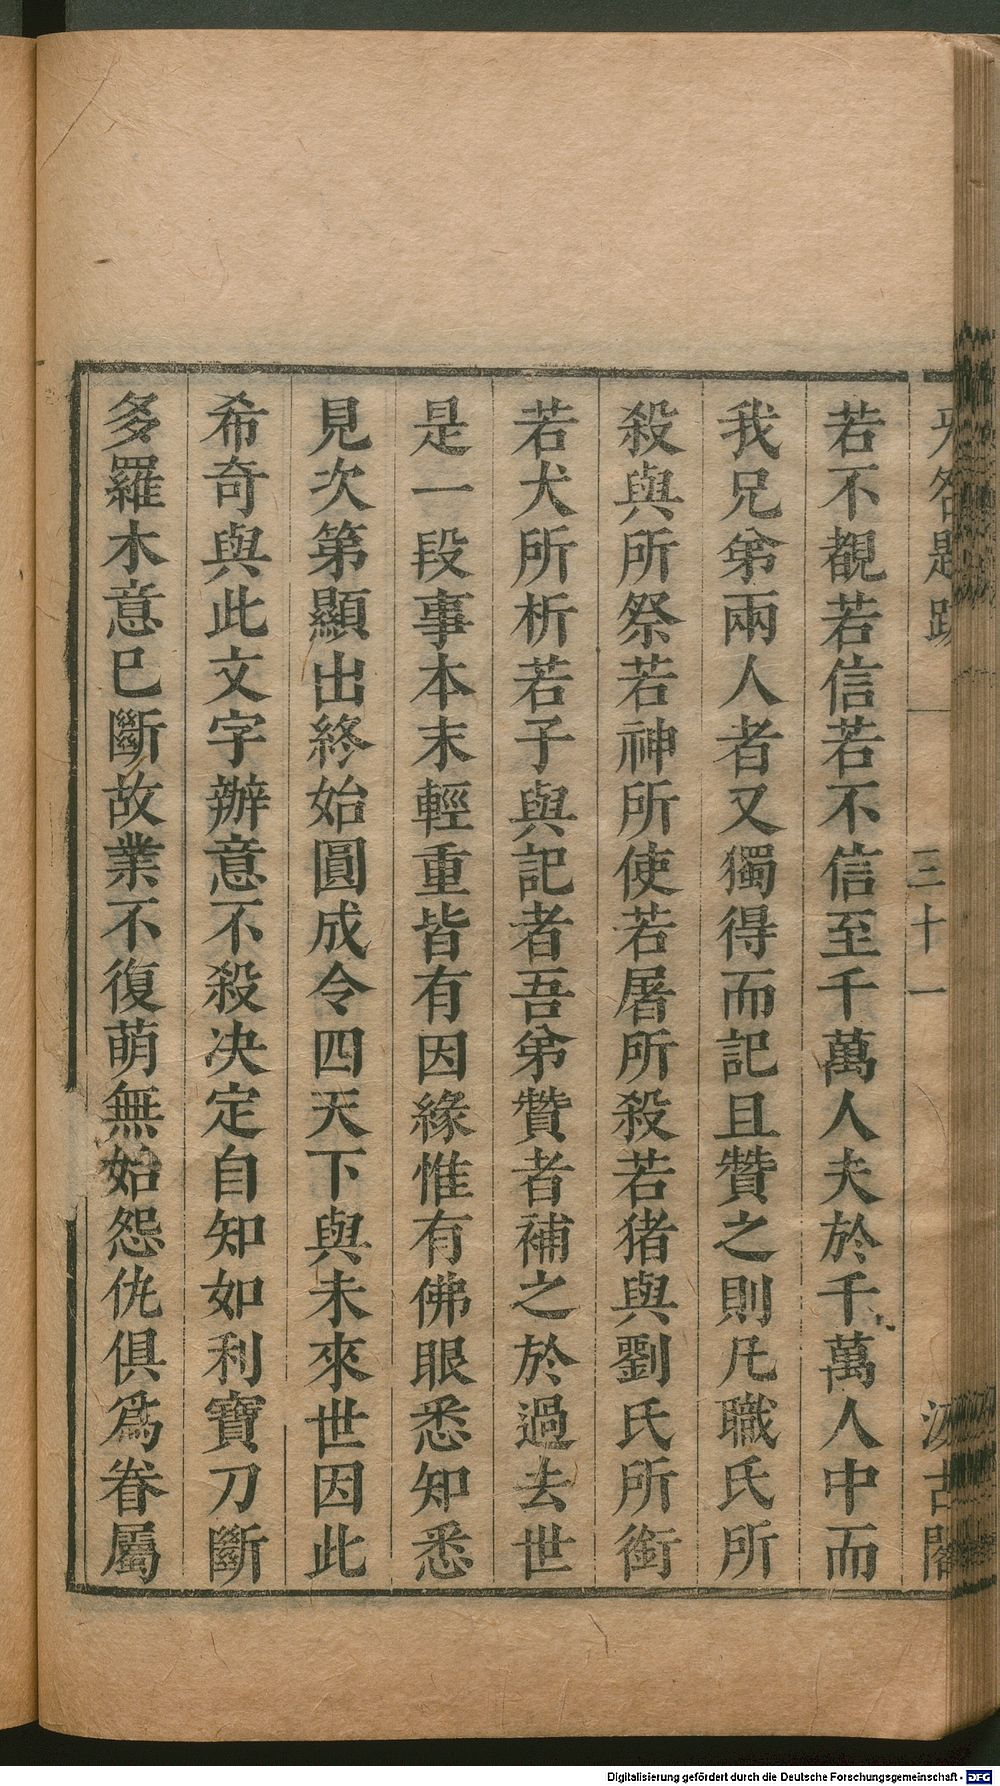 題跋 三十一 汲古閣
若不覩若信若不信至千萬人夫於千萬人中而
我兄弟兩人者又獨得而記且贊之則凡職氏所
殺與所祭若神所使若屠所殺若猪與劉氏所銜
若犬所析若子與記者吾弟贊者補之於過去世
是一段事本末輕重皆有因緣惟有佛眼悉知悉
見次第顯出終始圓成令四天下與未來世因此
希奇與此文字辦意不殺決定自知如利寶刀斷
多羅木意已斷故業不復萌無始怨仇俱爲眷屬
Digitalisierung gefördert durch die Deutsche Forschungsgemeinschaft - DFG